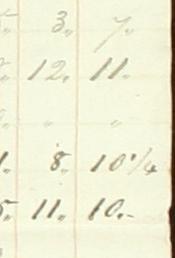 3„ 7„
12„ 11„
„ „
8„ 10 1/4
11„ 10„-